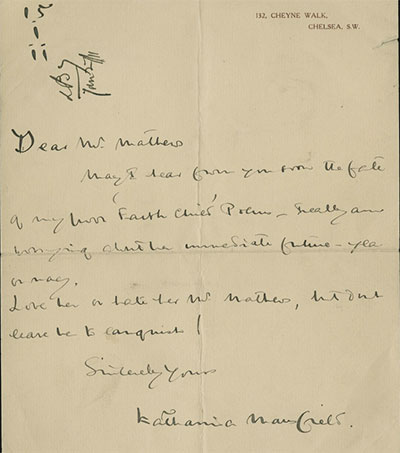 132, CHEYNE WALK,
CHELSEA, S.W.
15
i
ii
Dear Mr. Mathews
May I hear from you soon the fate
of my poor 'Earth Child' Poems – I really am
worrying about her immediate future – yea
or nay.
Love her or hate her Mr Mathews, but don't
leave her to languish!
Sincerely Yours
Katharina Mansfield.